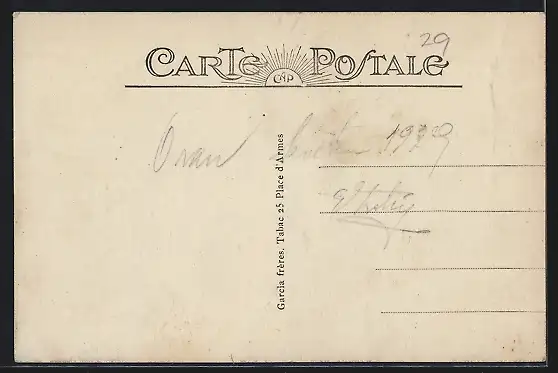 29
CARTE POSTALE
CAP
Oran
1929
Garcia frères, Tabac 25 Place d'Armes